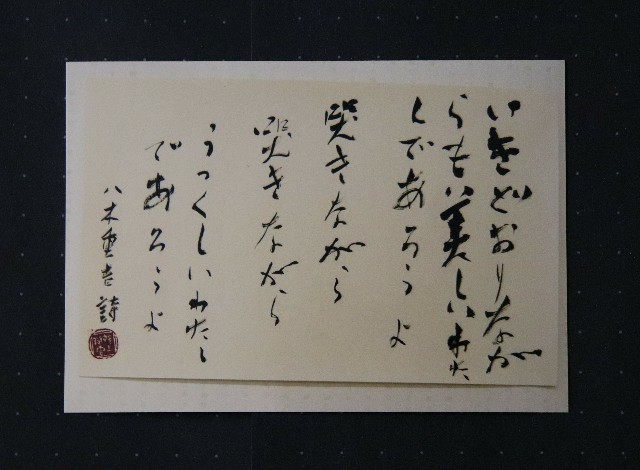 いきどおりなが
らも美しいわた
しであろうよ
哭きながら
哭きながら
うつくしいわたし
であろうよ
八木重吉 詩